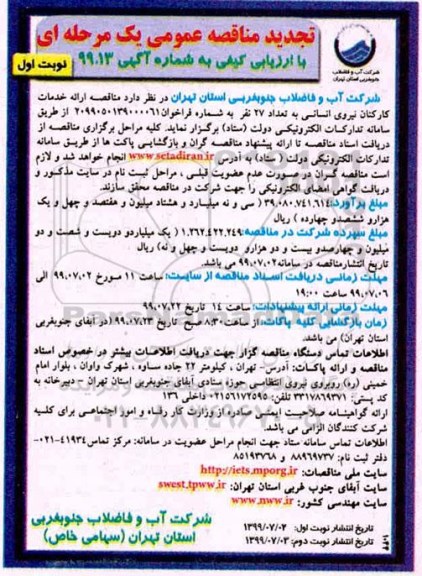 تجدید مناقصه عمومی یک مرحله ای
با ارزیابی کیفی به شماره آگهی ۹۹.۱۳
نوبت اول
شرکت آب و فاضلاب
جنوبغربی استان تهران
شرکت آب و فاضلاب جنوبغربی استان تهران در نظر دارد مناقصه ارائه خدمات
کارکنان نیروی انسانی به تعداد ۲۷ نفر به شماره فراخوان ۲۰۹۹۰۵۰۱۳۹۰۰۰۰۶۱ از طریق
سامانه تدارکات الکترونیکی دولت (ستاد) برگزار نماید. کلیه مراحل برگزاری مناقصه از
دریافت اسناد مناقصه تا ارائه پیشنهاد مناقصه گران و بازگشایی پاکت ها از طریق سامانه
تدارکات الکترونیکی دولت (ستاد) به آدرس www.setadiran.ir انجام خواهد شد و لازم
است مناقصه گران در صورت عدم عضویت قبلی، مراحل ثبت نام در سایت مذکور و
دریافت گواهی امضای الکترونیکی را جهت شرکت در مناقصه محقق سازند.
مبلغ برآورد: ۳۹.۰۸۰.۷۴۱.۶۱۴ ( سی و نه میلیارد و هشتاد میلیون و هفتصد و چهل و یک
هزارو ششصدو چهارده ) ریال
مبلغ سپرده شرکت در مناقصه: ۱.۲۶۲.۴۲۲.۲۴۹ ( یک میلیاردو دویست و شصت و دو
میلیون و چهارصدو بیست و دو هزارو دویست و چهل و نه) ریال
تاریخ انتشار مناقصه در سامانه ۹۹.۰۷.۰۲ می باشد.
مهلت زمانی دریافت اسناد مناقصه از سایت: ساعت ۱۱ مورخ ۹۹.۰۷.۰۲ الی
۹۹.۰۷.۰۶ ساعت ۱۹:۰۰
مهلت زمانی ارائه پیشنهادات: ساعت ۱۴ تاریخ ۹۹.۰۷.۲۲
زمان بازگشایی کلیه پاکات: از ساعت ۸:۳۰ صبح تاریخ ۹۹.۰۷.۲۳ (در آبفای جنوبغربی
استان تهران) می باشد.
اطلاعات تماس دستگاه مناقصه گزار جهت دریافت اطلاعات بیشتر در خصوص اسناد
مناقصه و ارائه پاکات: آدرس- تهران ، کیلومتر ۲۲ جاده ساوه ، شهرک واوان ، بلوار امام
خمینی (ره) روبروی نیروی انتظامی حوزه ستادی آبفای جنوبغربی استان تهران - دبیرخانه به
کد پستی: ۳۳۱۷۸۶۹۳۷۱ تلفن: ۰۲۱۵۶۱۷۲۵۹۵ داخلی ۱۳۶
ارائه گواهینامه صلاحیت ایمنی صادره از وزارت کار رفاه و امور اجتماعی برای کلیه
شرکت کنندگان الزامی می باشد.
اطلاعات تماس سامانه ستاد جهت انجام مراحل عضویت در سامانه: مرکز تماس ۴۱۹۳۴-۰۲۱
دفتر ثبت نام: ۸۸۹۶۹۷۳۷ و ۸۵۱۹۳۷۶۸
سایت ملی مناقصات: http://iets.mporg.ir
سایت آبفای جنوب غربی استان تهران: swest.tpww.ir
سایت مهندسی کشور: www.nww.ir
تاریخ انتشار نوبت اول: ۱۳۹۹/۰۷/۰۲
تاریخ انتشار نوبت دوم: ۱۳۹۹/۰۷/۰۳
شرکت آب و فاضلاب جنوبغربی
استان تهران (سهامی خاص)